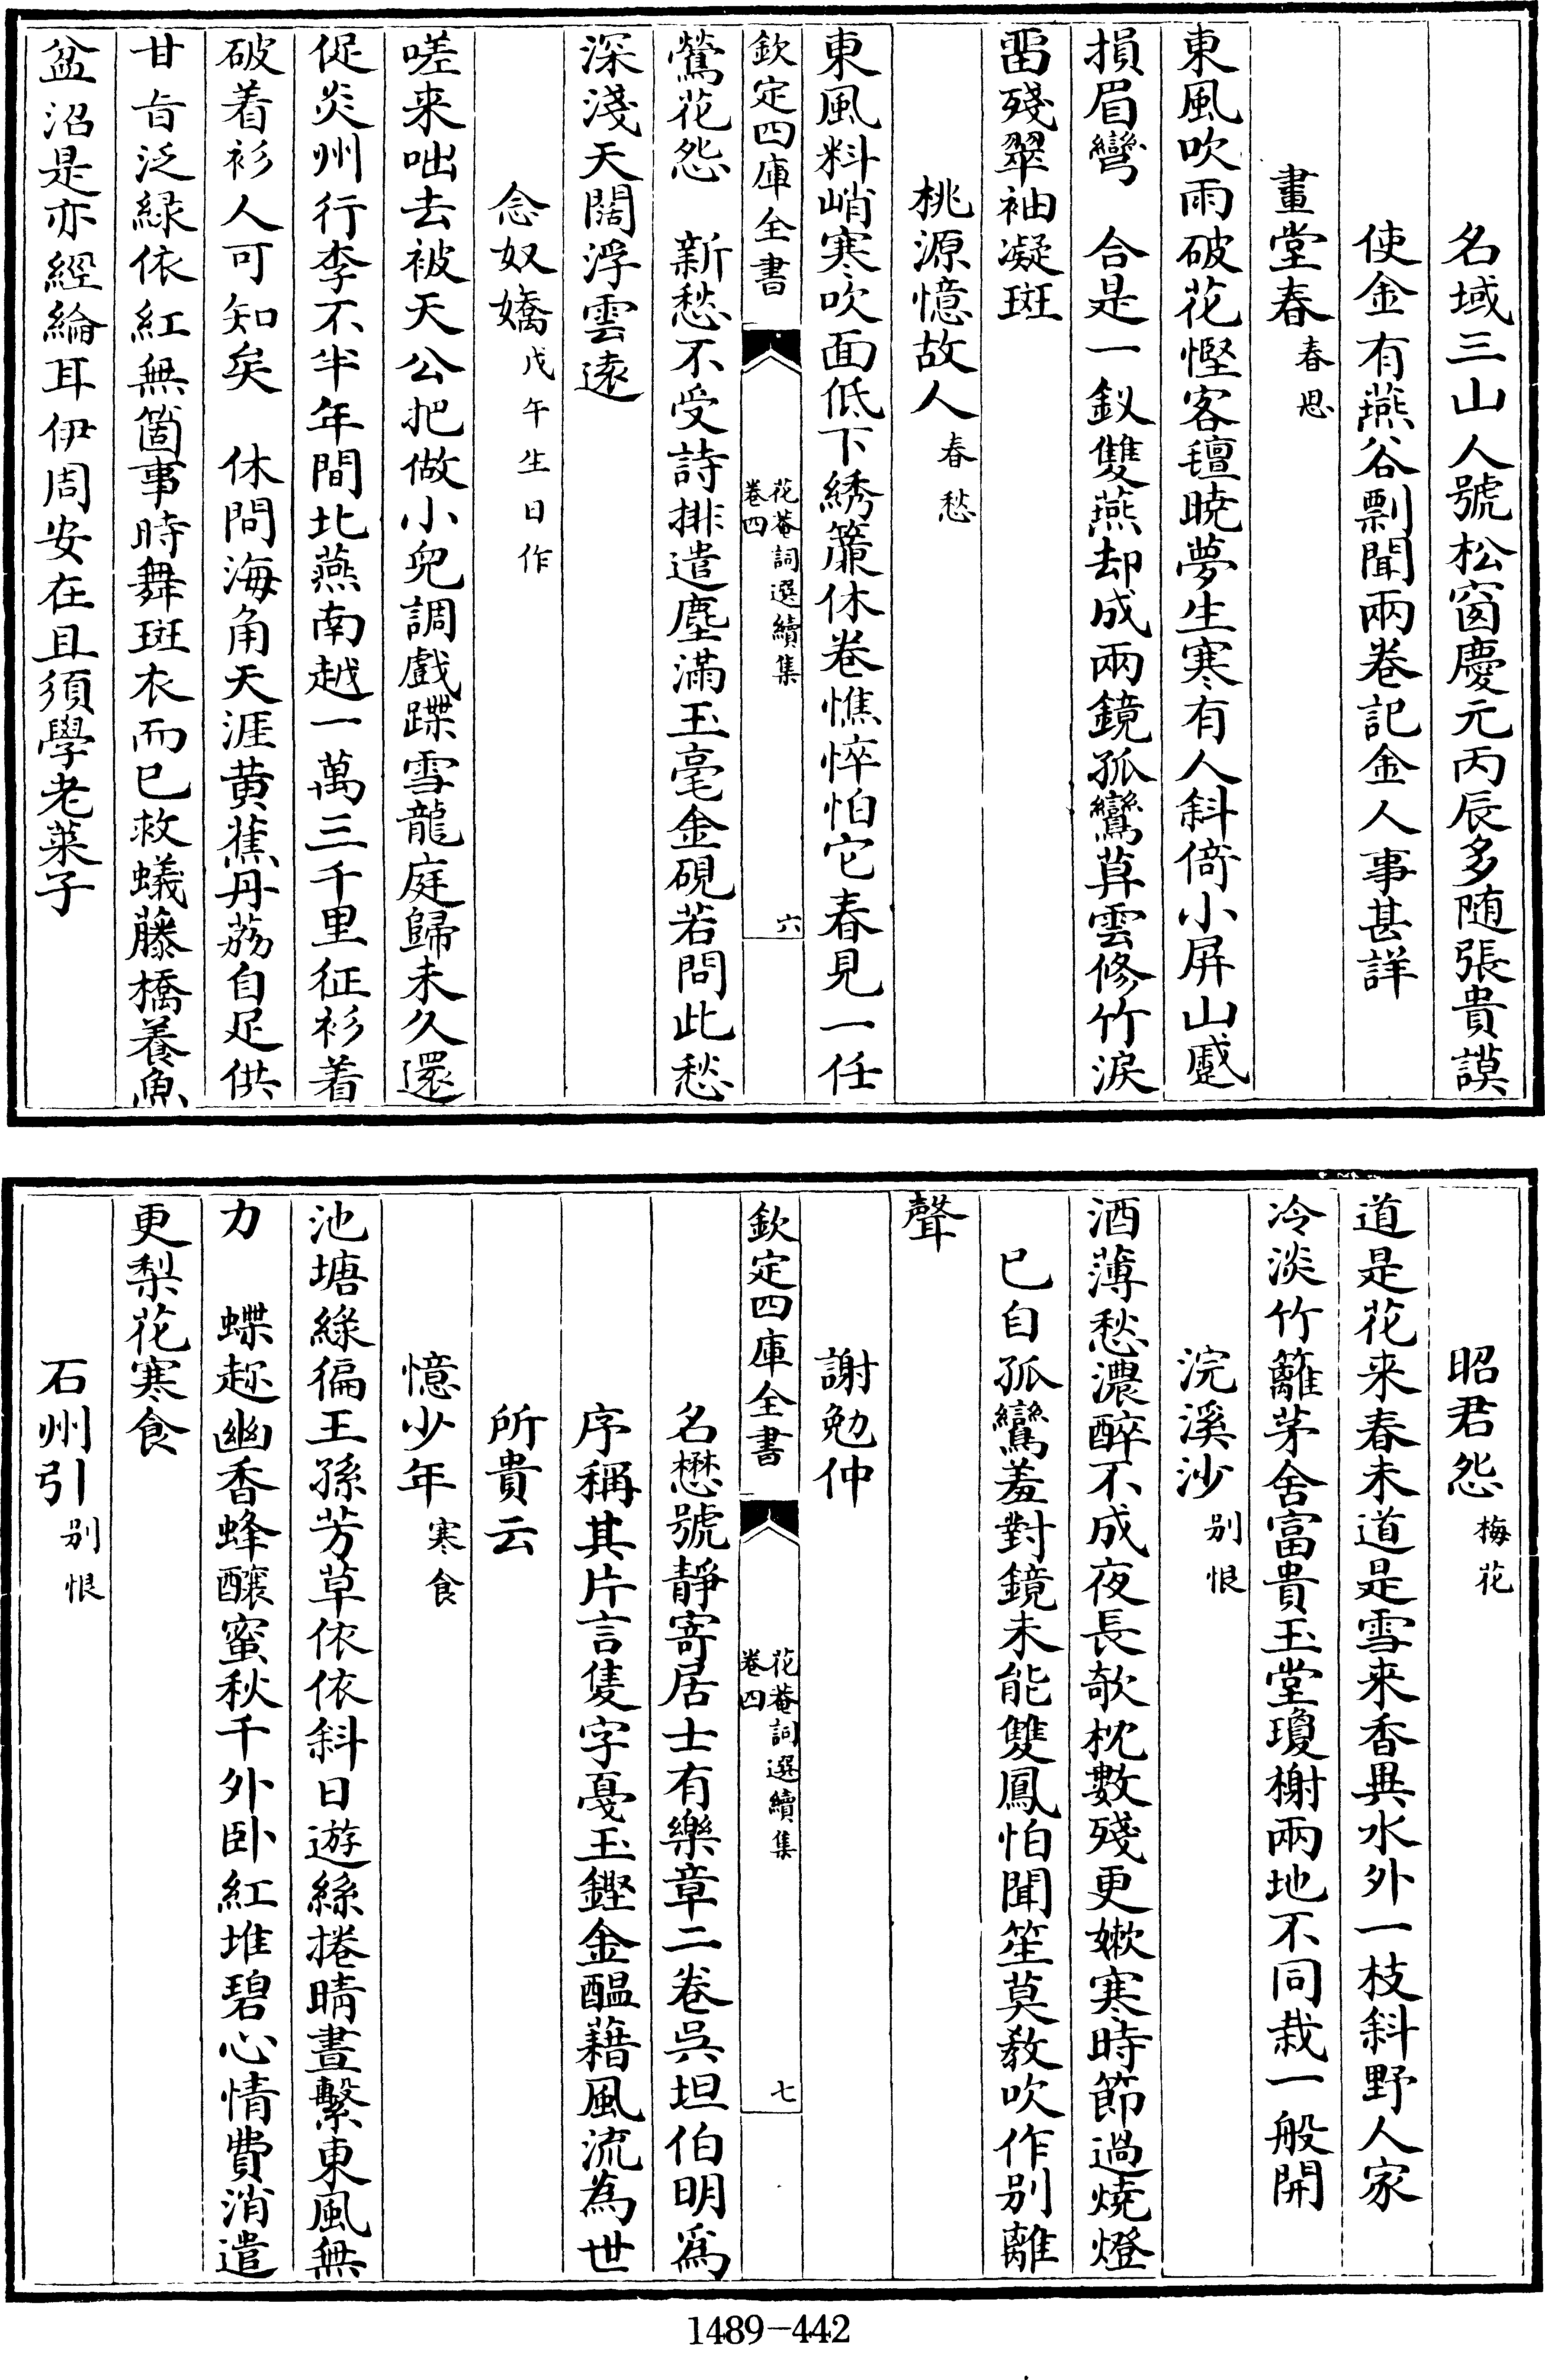 名域三山人號松窗慶元丙辰多随張貴謨
使金有燕谷剽聞兩卷記金人事甚詳
畫堂春春思
東風吹雨破花慳客氊曉夢生寒有人斜倚小屏山蹙
損眉彎　合是一釵雙燕却成兩鏡孤鸞莫雲修竹淚
畱殘翠袖凝斑
桃源憶故人春愁
東風料峭寒吹面低下綉簾休卷憔悴怕它春見一任
欽定四庫全書　花菴詞選續集　卷四　六
鶯花怨　新愁不受詩排遣塵滿玉毫金硯若問此愁
深淺天闊浮雲遠
念奴嬌戊午生日作
嗟来咄去被天公把做小兒調戲蹀雪龍庭歸未久還
促炎州行李不半年間北燕南越一萬三千里征衫着
破着衫人可知矣　休問海角天涯黄蕉丹荔自足供
甘旨泛緑依紅無箇事時舞斑衣而已救蟻藤橋養魚
盆沼是亦經綸耳伊周安在且須學老萊子
昭君怨梅花
道是花来春未道是雪来香異水外一枝斜野人家
冷淡竹籬茅舍富貴玉堂瓊榭兩地不同栽一般開
浣溪沙别恨
酒薄愁濃醉不成夜長欹枕數殘更嫩寒時節過燒燈
已自孤鸞羞對鏡未能雙鳳怕聞笙莫教吹作别離
聲
謝勉仲
名懋號靜寄居士有樂章二卷吳坦伯明爲
序稱其片言隻字戞玉鏗金醖藉風流為世
所貴云
憶少年寒食
池塘緑徧王孫芳草依依斜日遊絲捲晴晝繫東風無
力　蝶趂幽香蜂釀蜜秋千外卧紅堆碧心情費消遣
更梨花寒食
石州引别恨
欽定四庫全書　花菴詞選續集　卷四　七
1489-442